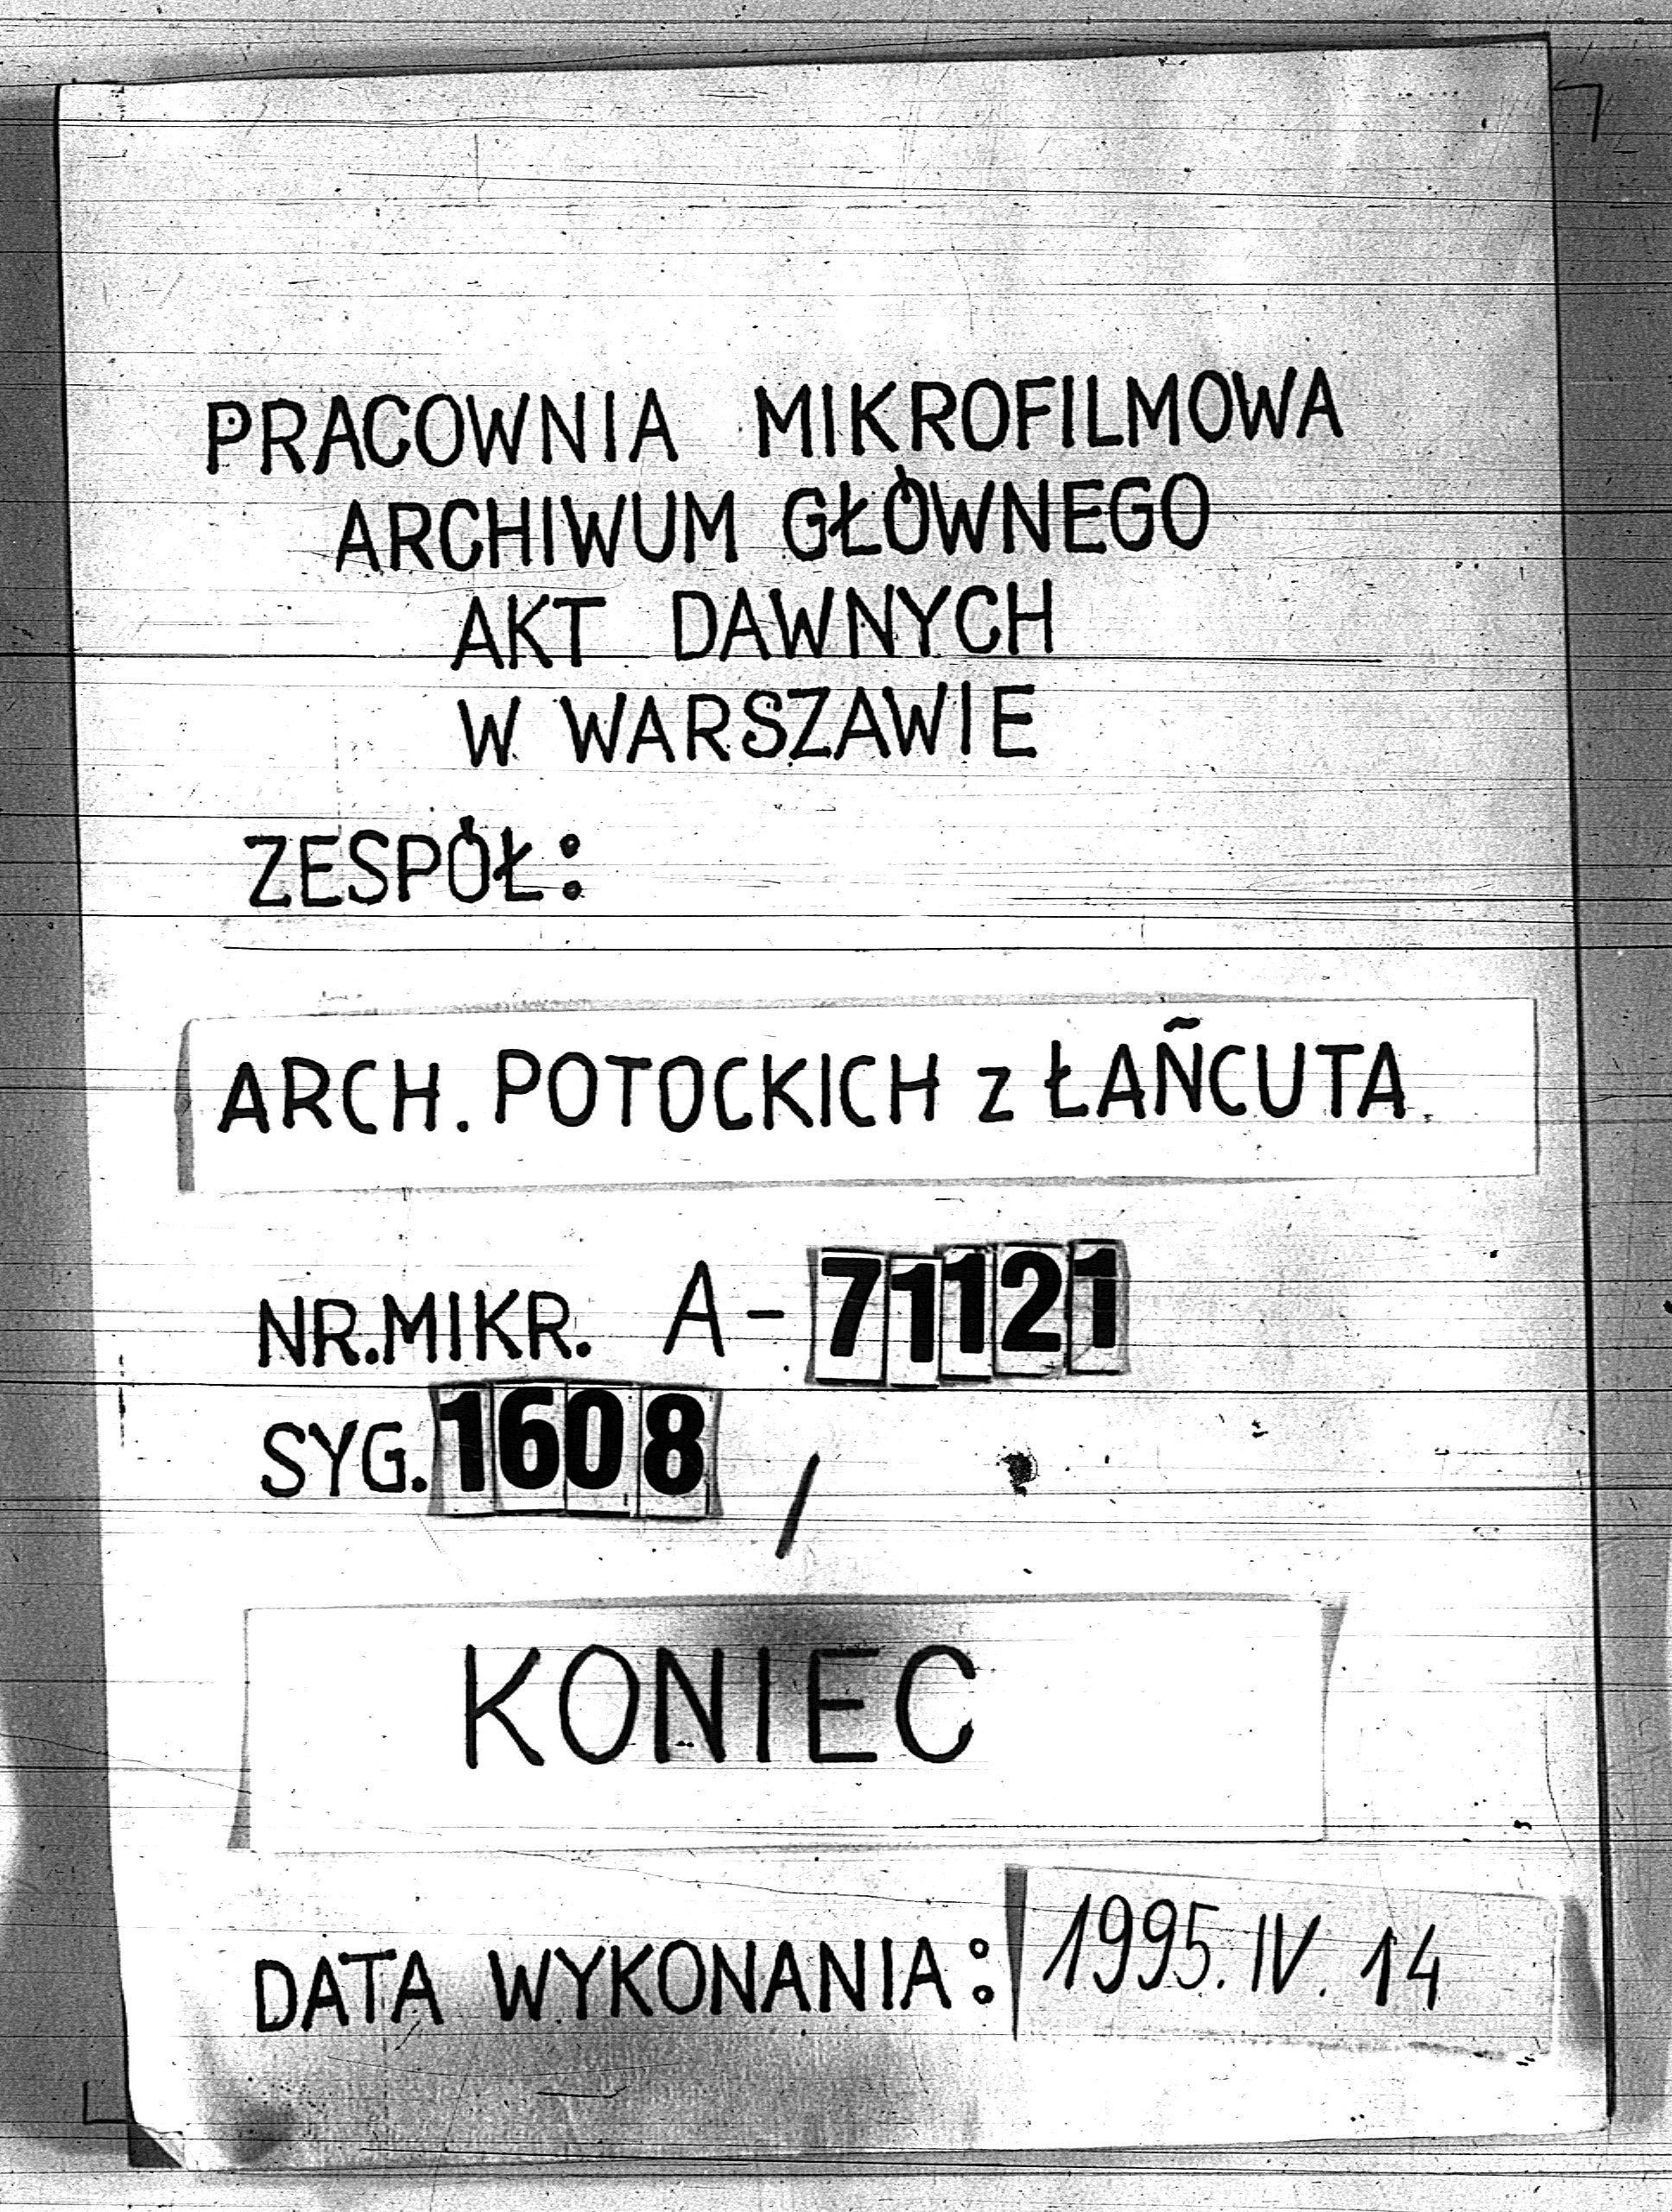 PRACOWNIA MIKROFILMOWA
ARCHIWUM GŁÓWNEGO
AKT DAWNYCH
W WARSZAWIE
ZESPÓŁ:
ARCH. POTOCKICH z ŁAÑCUTA
NR.MIKR. A-71121
SYG. 1608 /
KONIEC
DATA WYKONANIA: 1995. IV. 14